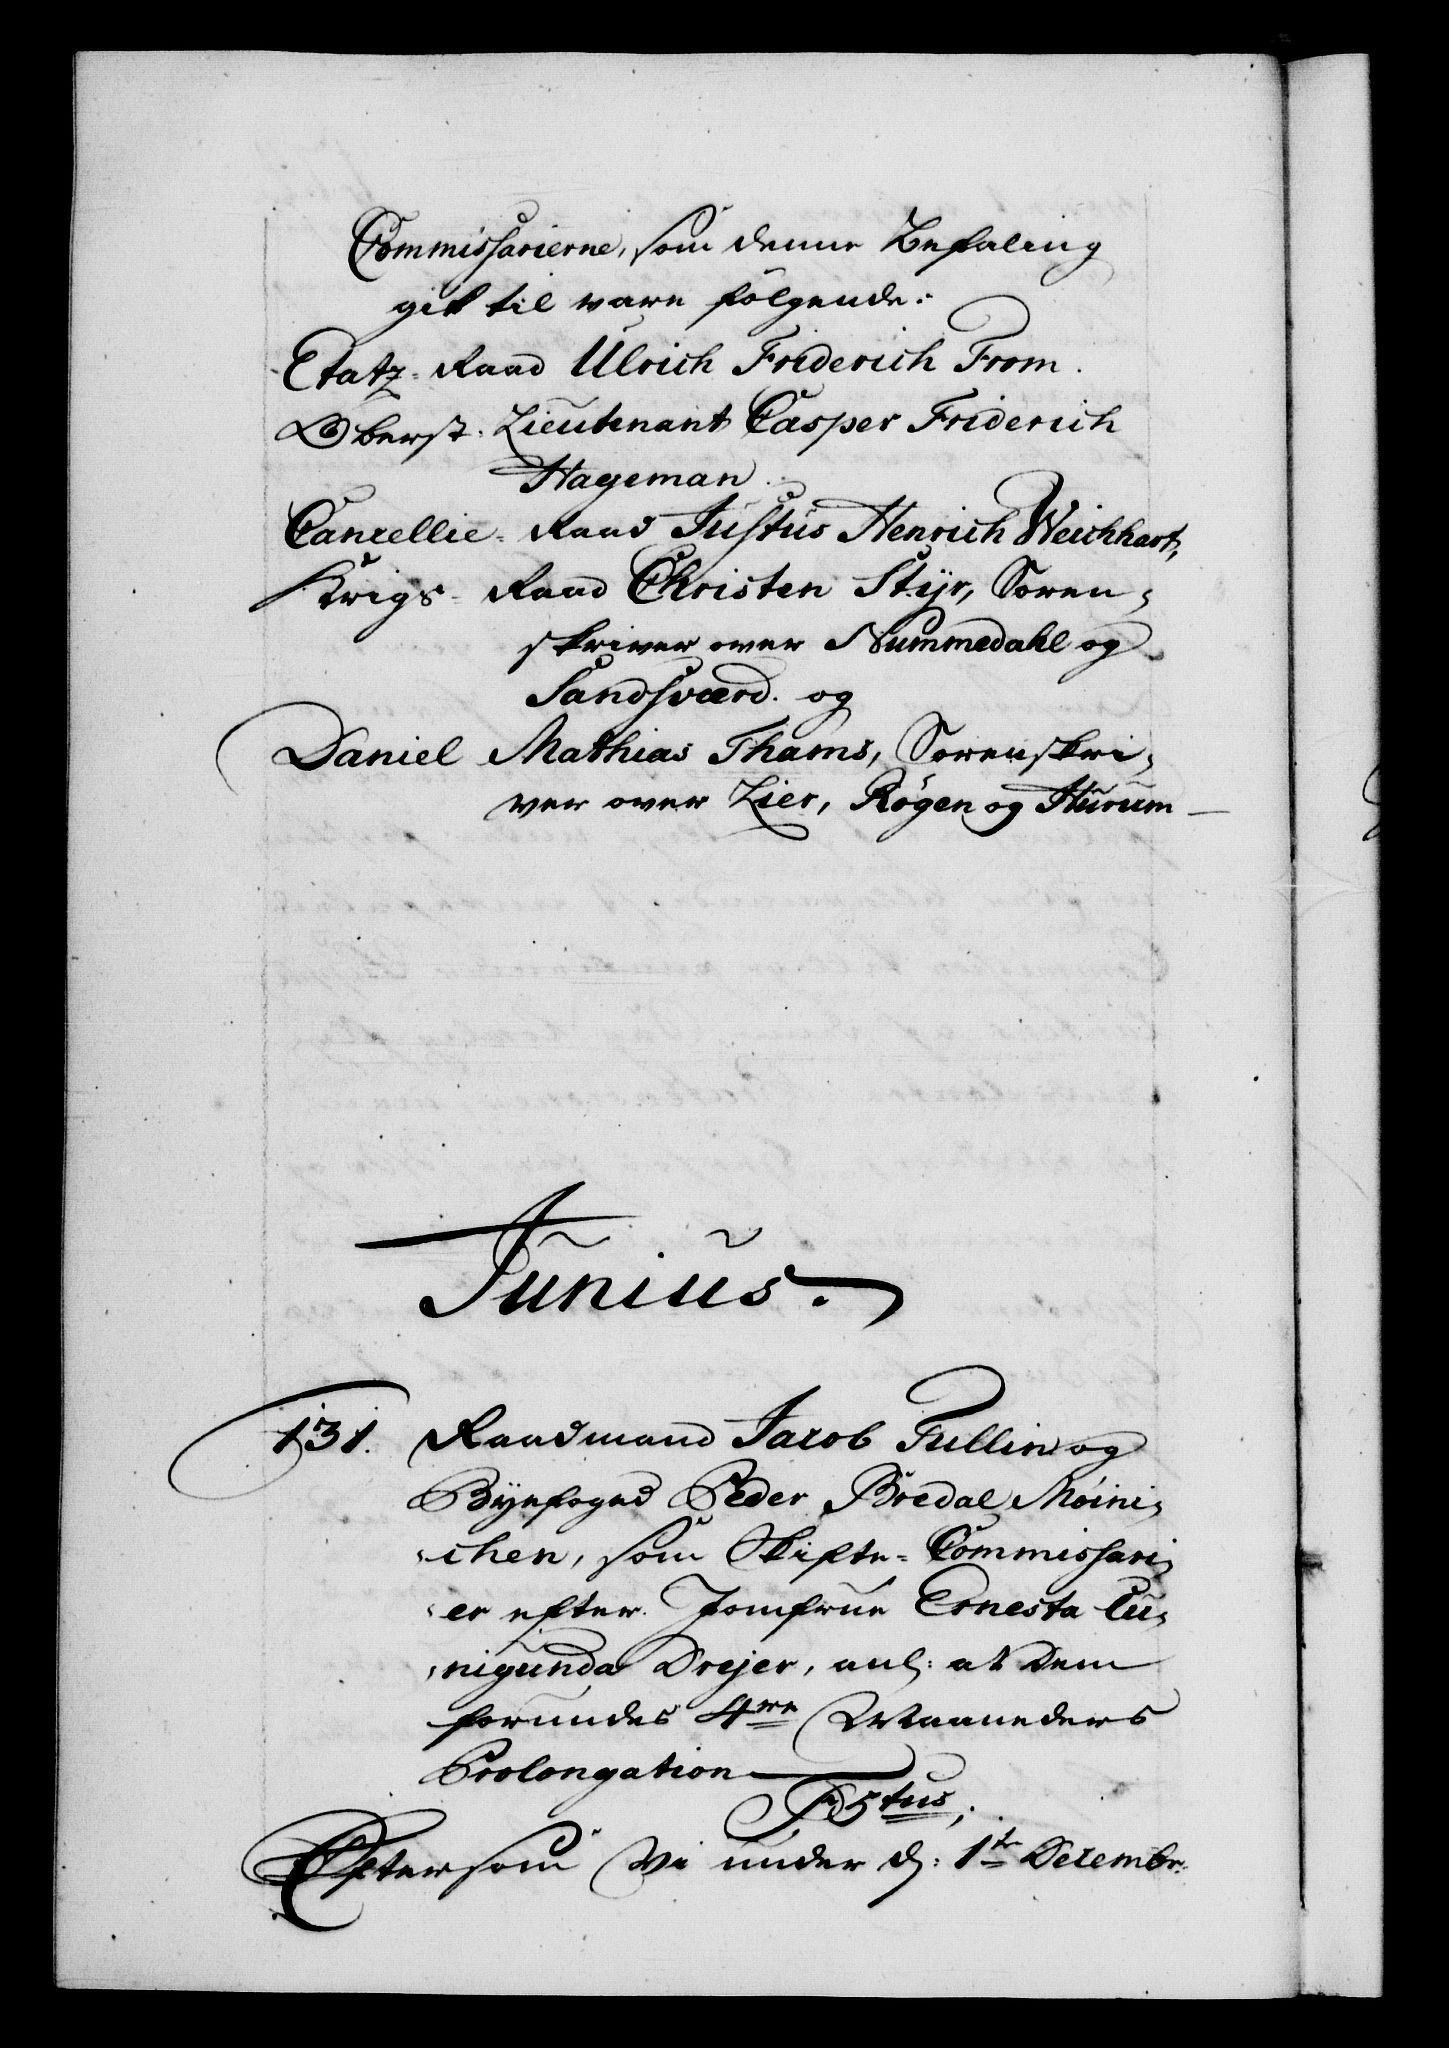 Commissarierne, som denne Befaling
gik til vare fölgende:
Etatz-Raad Ulrich Friderich From.
Oberst-Lieutenant Casper Friderich
Hageman.
Cancellie-Raad Justus Henrich Weichhart,
Krigs-Raad Christen Styr, Soren-
skriver over Nummedahl og
Sandsværd. og
Daniel Mathias Thams, Sorenskri-
ver over Lier, Røgen og Hurum
Junius.
131. Raadmand Jacob Tullin og
Byefoged Peder Bredal Möini-
chen, som Skifte-Commissari-
er efter Jomfrue Ernesta Cu-
nigunda Drejer, anl: at dem
forundes 4re Maaneders
Prolongation
F5tus;
Eftersom Vi under d: 1te Decembr: